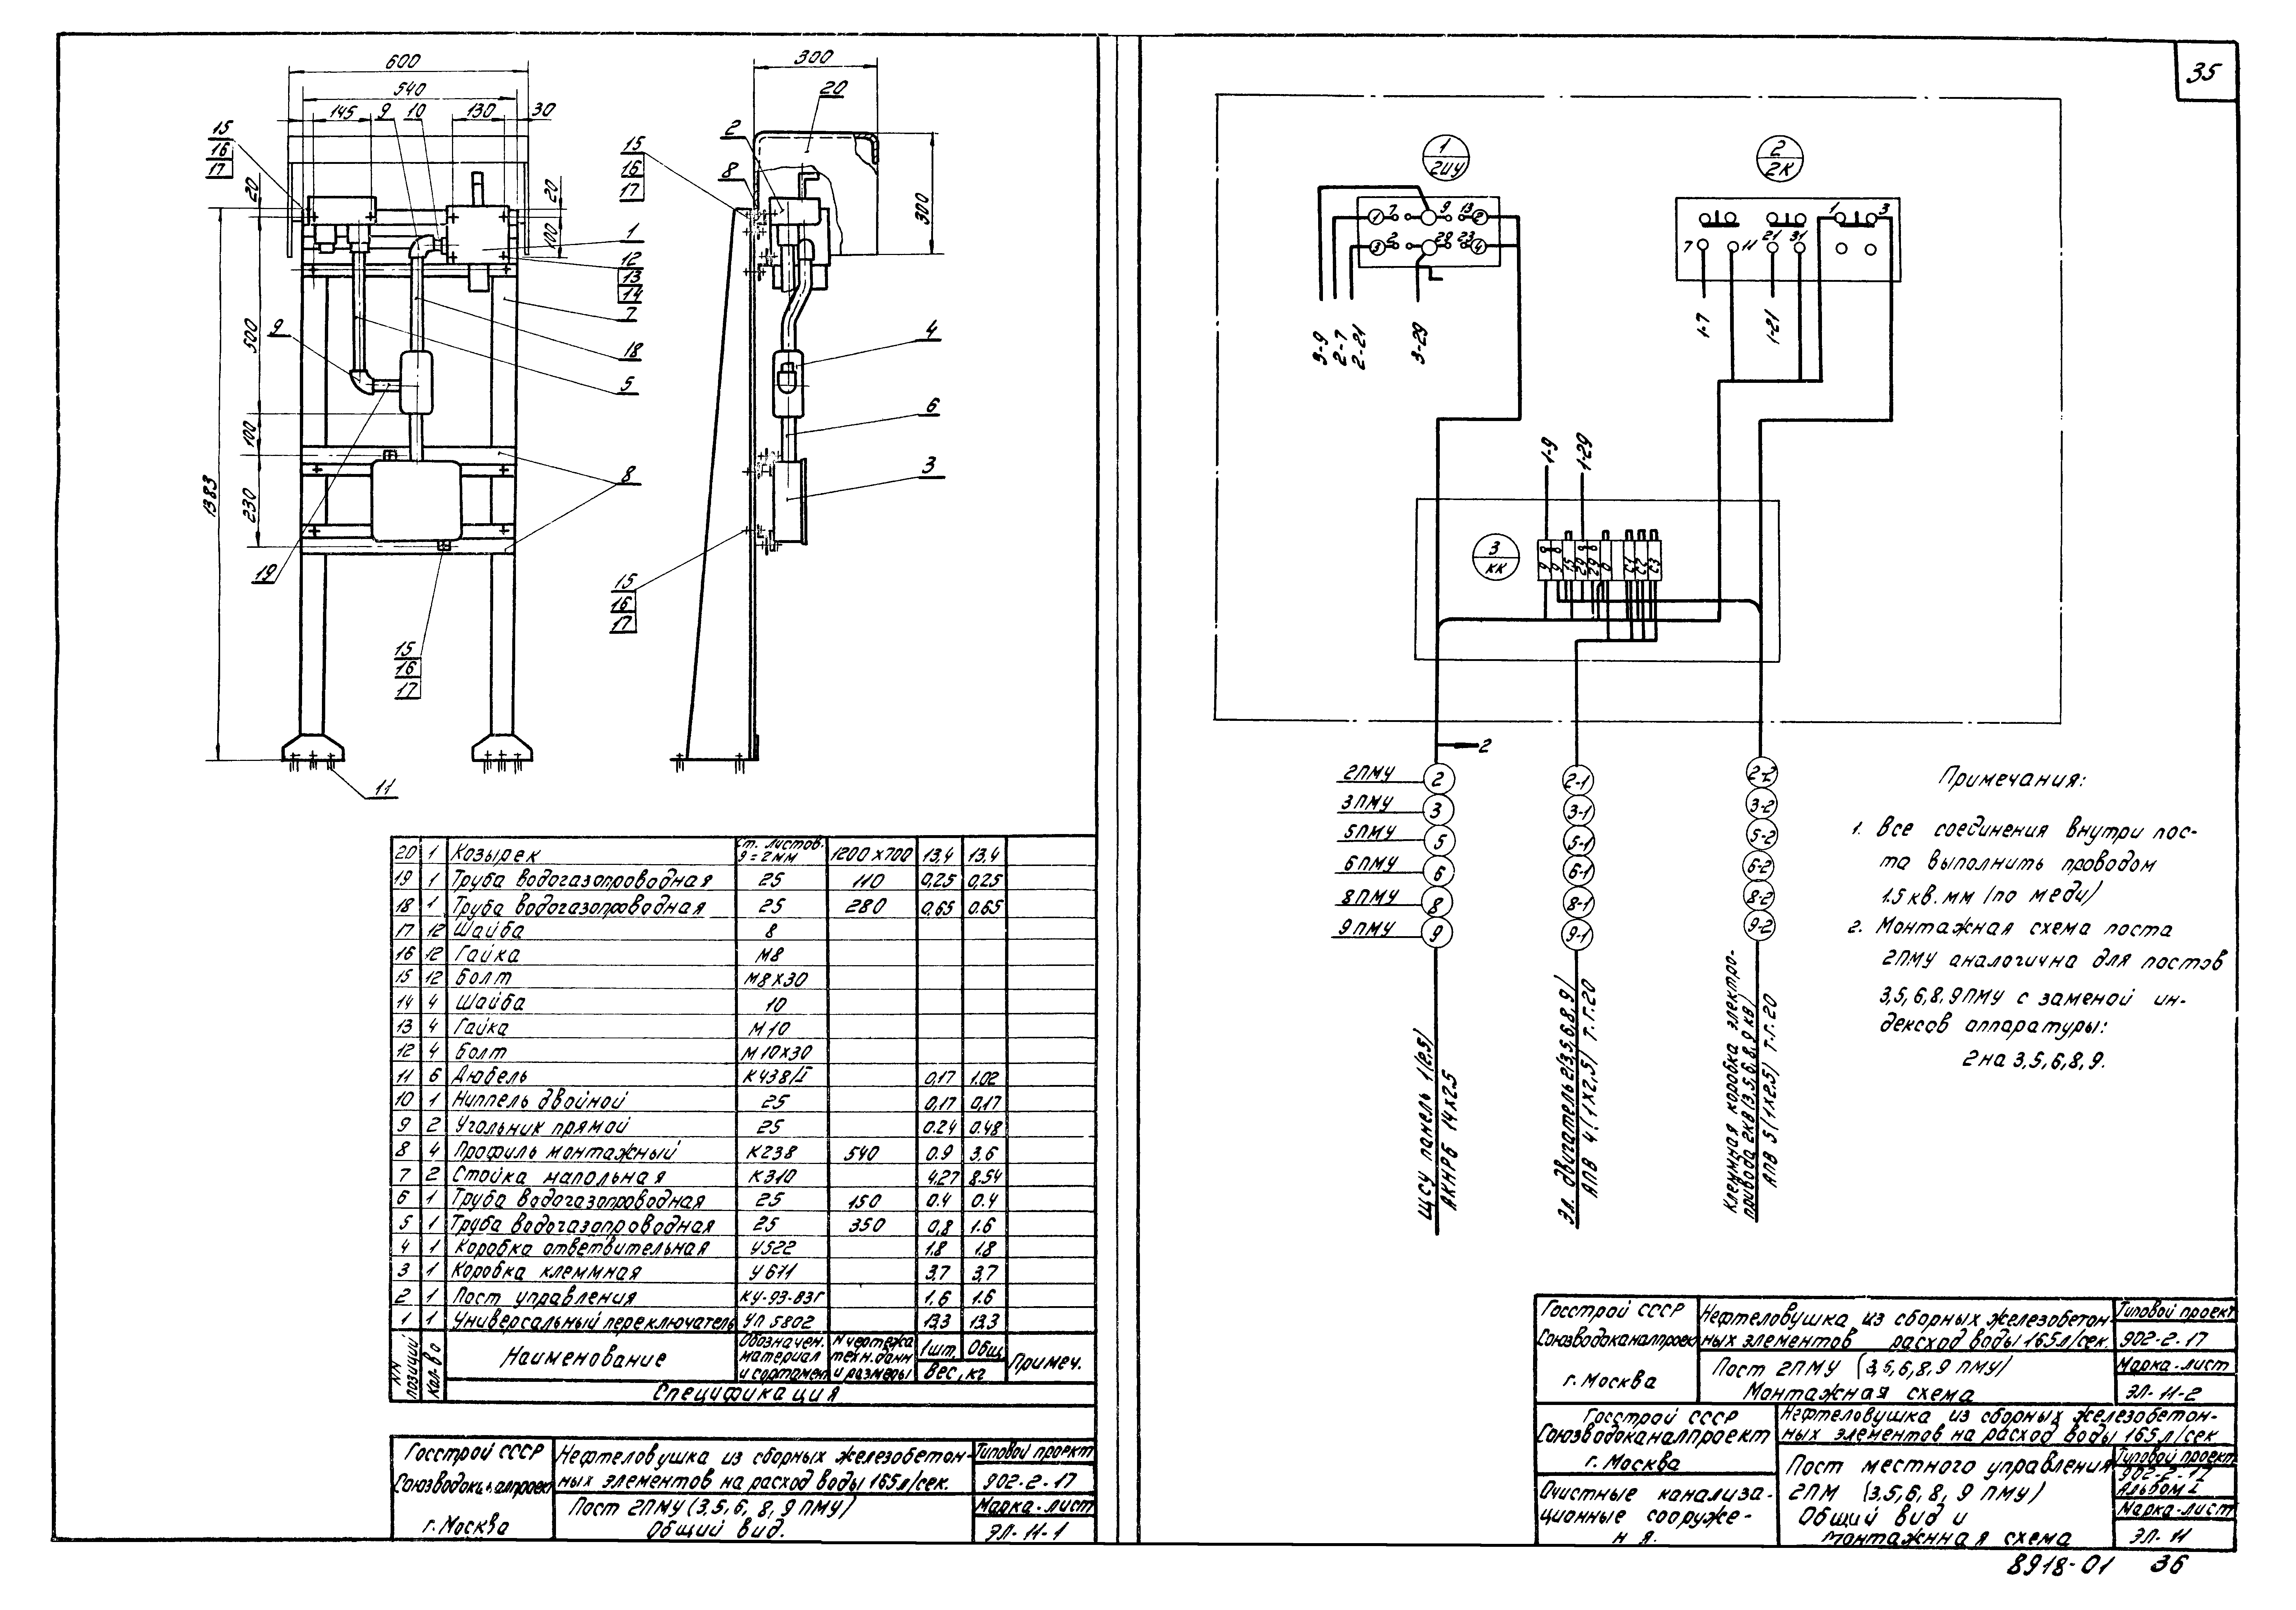 35
600
540
145
9
10
130
30
15
16
17
20
20
100
1
12
13
14
7
9
500
18
5
100
8
230
1383
19
15
16
17
11
300
20
2
15
16
17
8
300
4
6
3
15
16
17
20 1 Козырек Ст. листов. δ=2мм 1200х700 13,4 13,4
19 1 Труба водогазопроводная 25 110 0,25 0,25
18 1 Труба водогазопроводная 25 280 0,65 0.65
17 12 Шайба 8
16 12 Гайка М8
15 12 Болт М8х30
14 4 Шайба 10
13 4 Гайка М10
12 4 Болт М10х30
11 6 Дюбель К438/I 0,17 1.02
10 1 Ниппель двойной 25 0,17 0,17
9 2 Угольник прямой 25 0.24 0.48
8 4 Профиль монтажный К238 540 0.9 3.6
7 2 Стойка напольная К310 4.27 8.54
6 1 Труба водогазопроводная 25 150 0.4 0.4
5 1 Труба водогазопроводная 25 350 0,8 1.6
4 1 Коробка ответвительная У522 1.8 1.8
3 1 Коробка клеммная У611 3,7 3,7
2 1 Пост управления КУ-93-ВЗГ 1,6 1.6
1 1 Универсальный переключатель УП 5802 13,3 13.3
NN позиций
Кол-во
Наименование
Обозначен. материал и сортамент
N чертежа техн. данн и размеры
1шт. Общ.
Вес, кг
Примеч.
Спецификация
Госстрой СССР
Союзводоканалпроект
г. Москва
Нефтеловушка из сборных железобетон-
ных элементов на расход воды 165л/сек.
Пост 2ПМУ (3,5,6,8,9 ПМУ)
Общий вид.
Типовой проект
902-2-17
Марка-лист
ЭЛ-11-1
1
2ИУ
2
2К
1 7 9 13 2
3 2 29 23 4
7 11 21 31 1 3
3-9
2-7
2-21
3-29
1-7
1-21
1-9
1-29
3
КК
9 9 15 29 29 0 С1 С2 С3
2
2ПМУ 2 2-1 2-2
3ПМУ 3 3-1 3-2
5ПМУ 5 5-1 5-2
6ПМУ 6 6-1 6-2
8ПМУ 8 8-1 8-2
9ПМУ 9 9-1 9-2
ЩСУ панель 1(2,5)
АКНРБ 14х2.5
Эл. двигатель 2(3,5,6,8,9)
АПВ 4(1х2,5) Т.Г.20
Клеммная коробка электро-
привода 2кв(3,5,6,8,9кв)
АПВ 5(1х2.5) Т.Г.20
Примечания:
1. Все соединения внутри пос-
та выполнить проводом
1.5 кв. мм (по меди)
2. Монтажная схема поста
2ПМУ аналогична для постов
3,5,6,8,9ПМУ с заменой ин-
дексов аппаратуры:
2 на 3,5,6,8,9.
Госстрой СССР
Союзводоканалпроект
г. Москва
Нефтеловушка из сборных железобетон-
ных элементов расход воды 165л/сек.
Пост 2ПМУ (3,5,6,8,9 ПМУ)
Монтажная схема
Типовой проект
902-2-17
Марка-лист
ЭЛ-11-2
Госстрой СССР
Союзводоканалпроект
г. Москва
Нефтеловушка из сборных железобетон-
ных элементов на расход воды 165л/сек
Очистные канализа-
ционные сооруже-
н я.
Пост местного управления
2ПМ (3,5,6,8,9 ПМУ)
Общий вид и
монтажнная схема
Типовой проект
902-2-17
Альбом I
Марка-лист
ЭЛ-11
8918-01 36